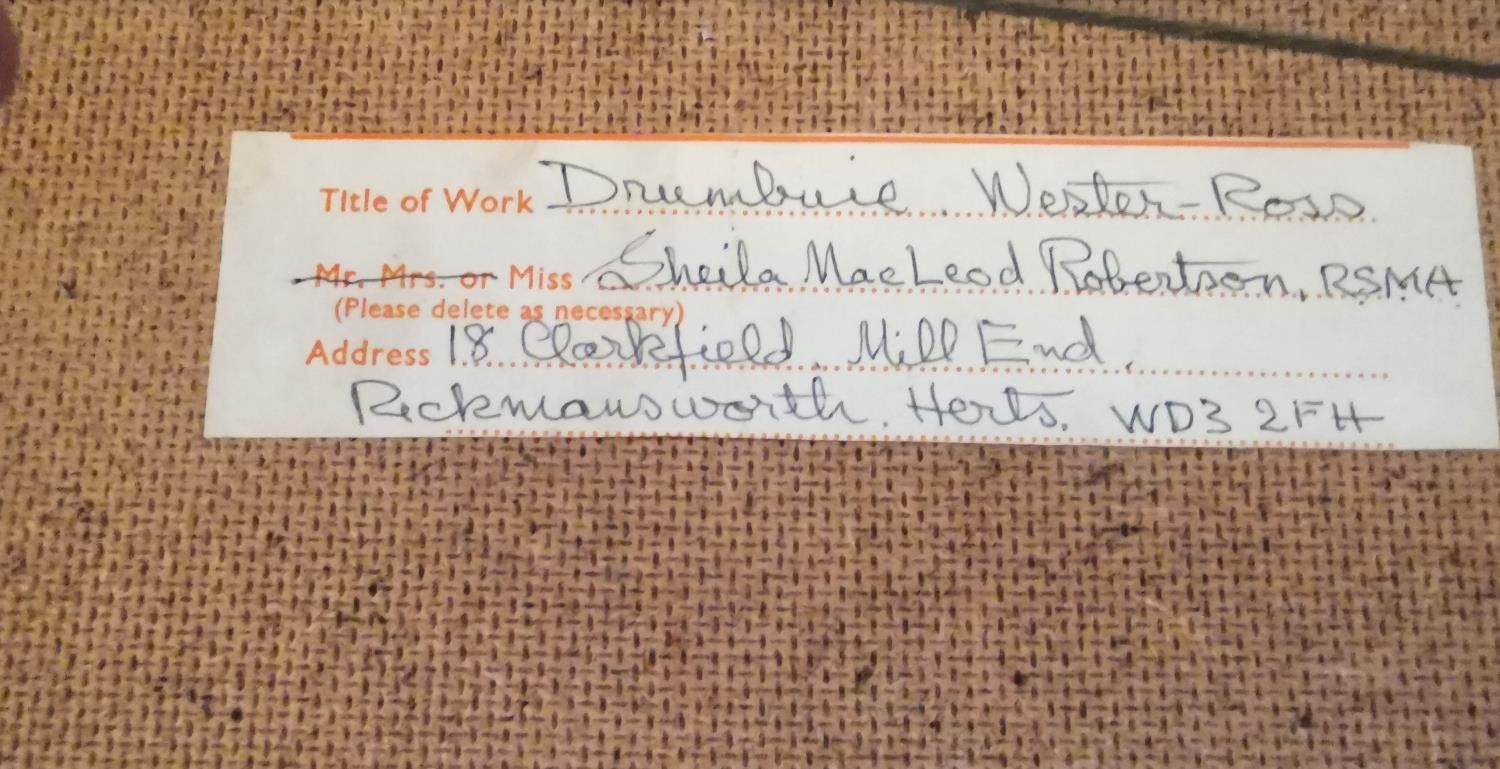 Title of Work Drumbuie. Wester-Ross
Mr. Mrs. or Miss Sheila MacLeod Robertson, RSMA
(Please delete as necessary)
Address 18 Clarkfield, Mill End,
Rickmansworth. Herts. WD3 2FH